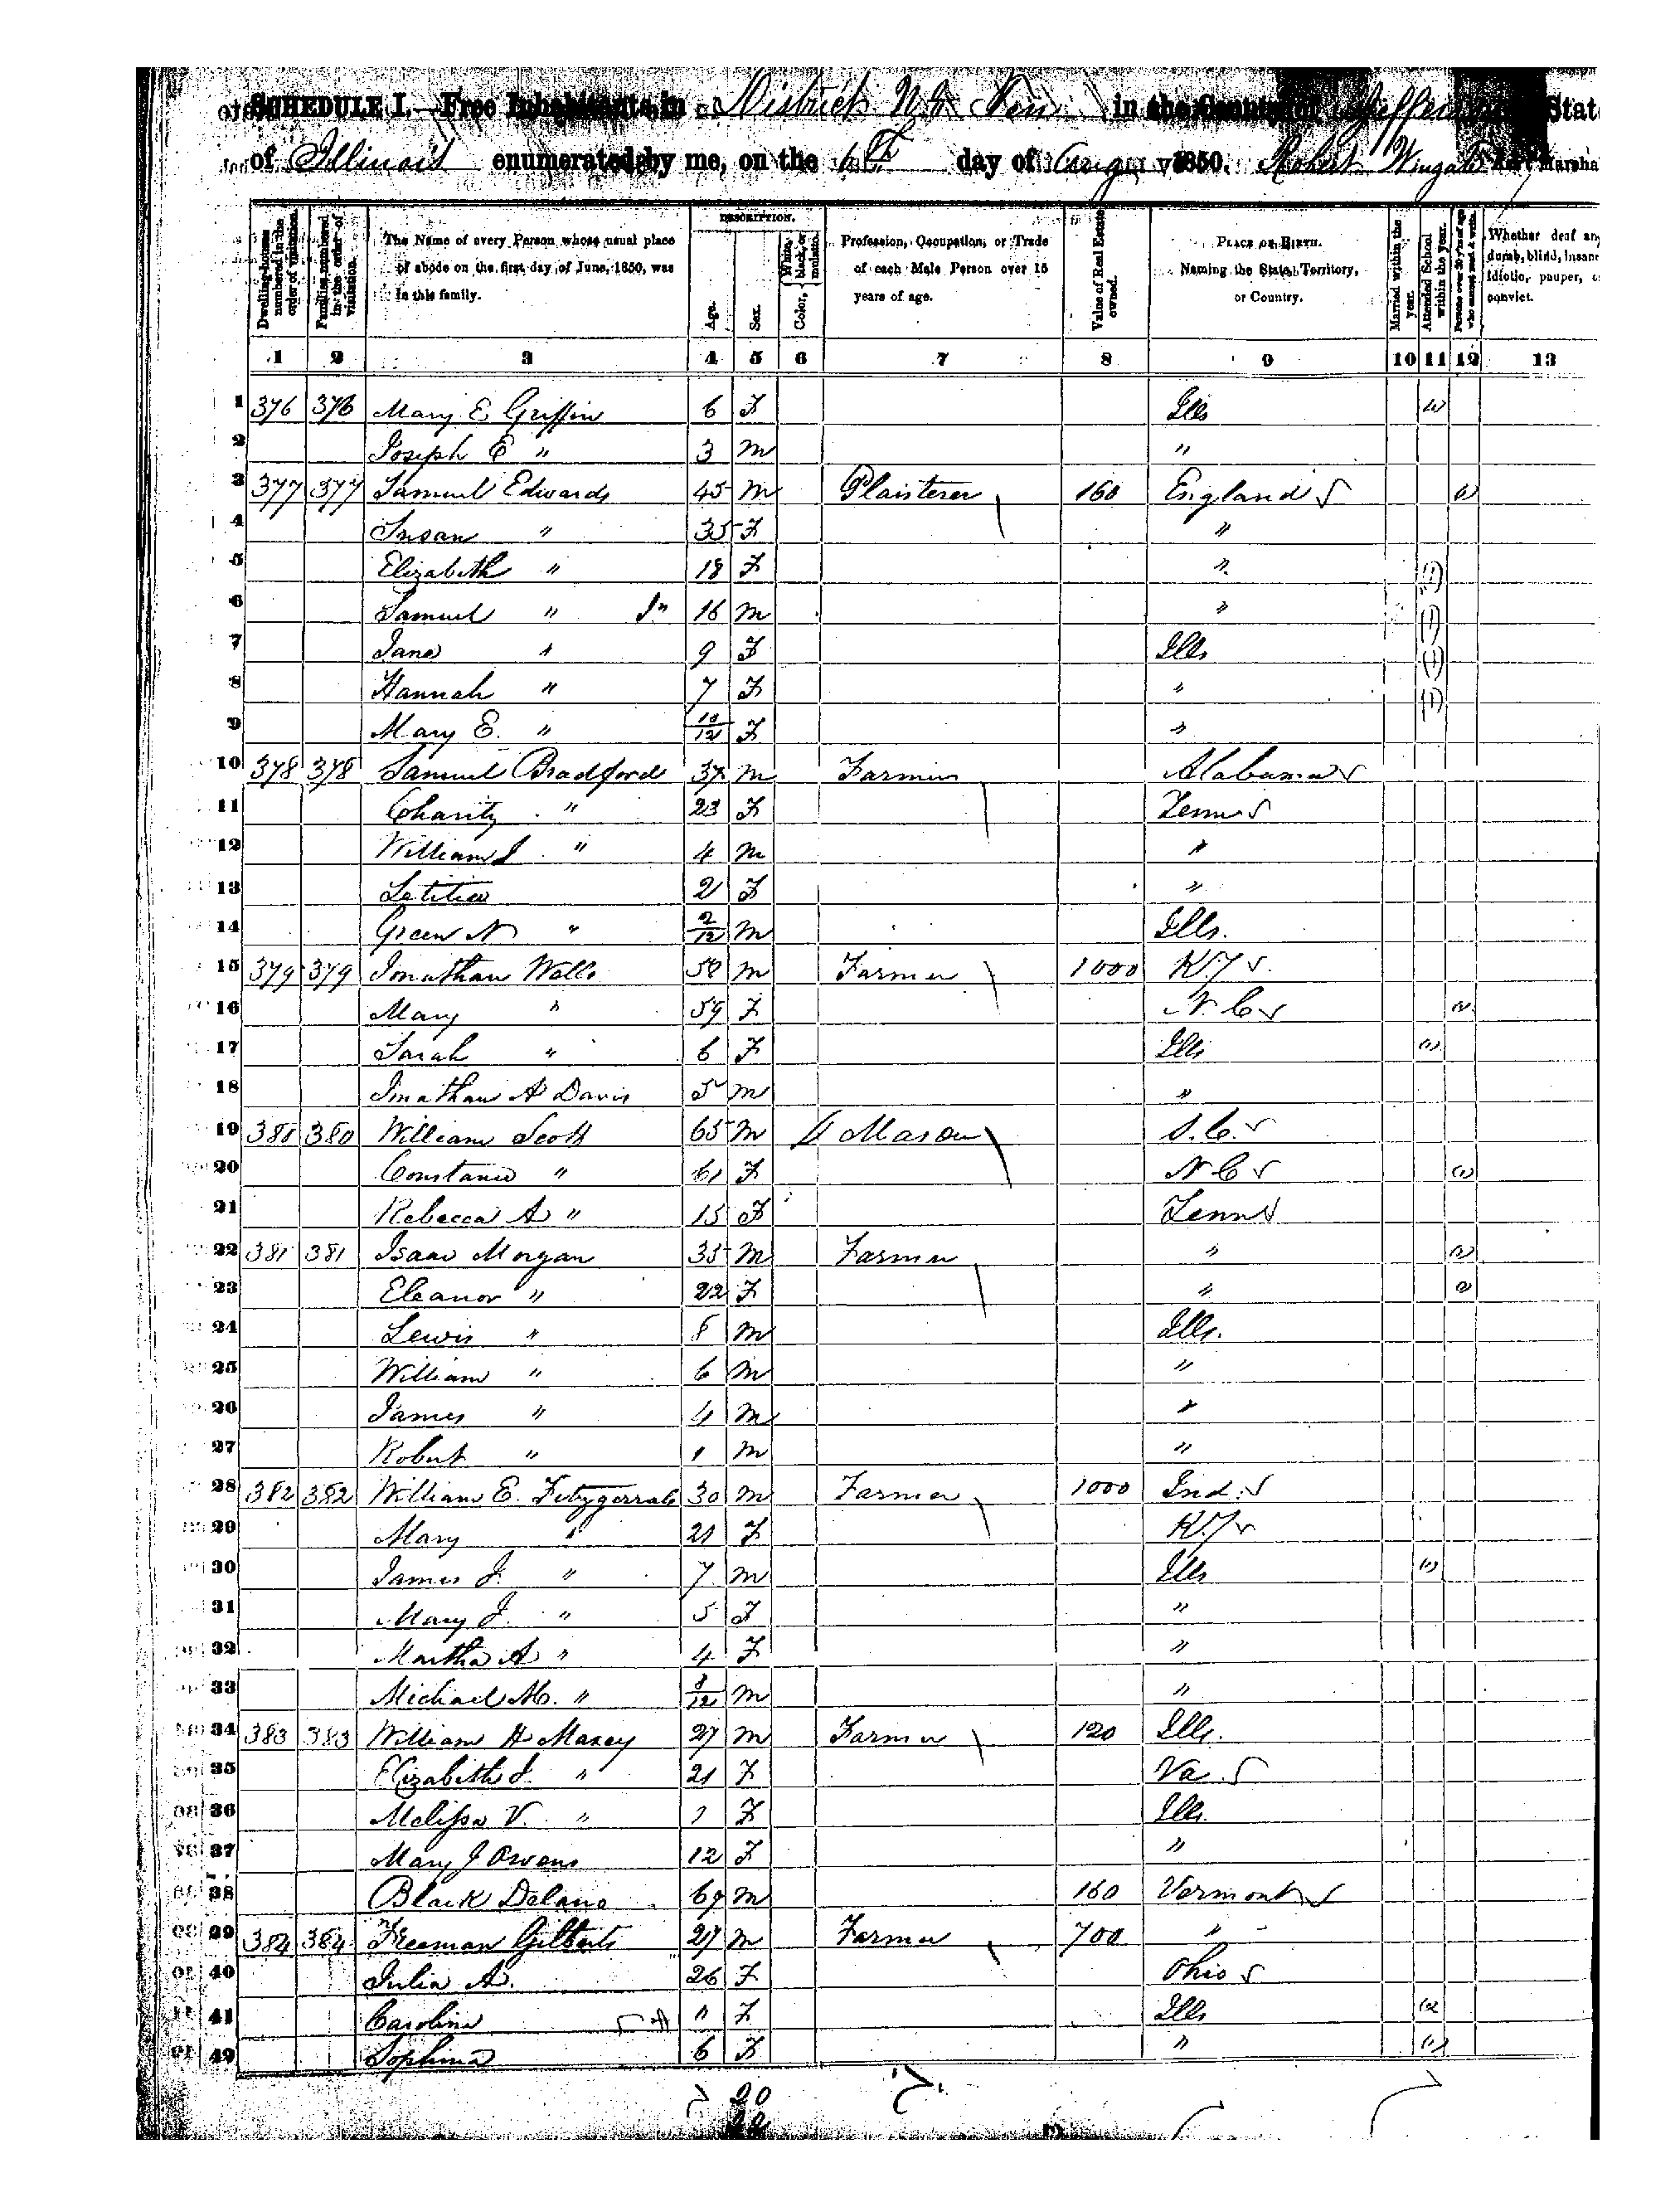 SCHEDULE I.—Free Inhabitants in District No Ten in the County of Jefferson State
of Illinois enumerated by me, on the 6th day of Aug 1850. Robert Wingate Ass't Marshal
Dwelling-houses numbered in the order of visitation.
Families numbered in the order of visitation.
The Name of every Person whose usual place of abode on the first day of June, 1850, was in this family.
DESCRIPTION.
Age.
Sex.
Color, White, black, or mulatto.
Profession, Occupation, or Trade of each Male Person over 15 years of age.
Value of Real Estate owned.
PLACE OF BIRTH. Naming the State, Territory, or Country.
Married within the year.
Attended School within the year.
Persons over 20 y'rs of age who cannot read & write.
Whether deaf and dumb, blind, insane, idiotic, pauper, or convict.
1 2 3 4 5 6 7 8 9 10 11 12 13
1 376 376 Mary E Griffin 6 F Ills (1)
2 Joseph E " 3 M "
3 377 377 Samuel Edwards 45 M Plaisterer 160 England (1)
4 Susan " 35 F "
5 Elizabeth " 18 F " (1)
6 Samuel " Jr 16 M " (1)
7 Jane " 9 F Ills (1)
8 Hannah " 7 F " (1)
9 Mary E. " 10/12 F "
10 378 378 Samuel Bradford 37 M Farmer Alabama
11 Charity " 23 F Tenn
12 William J " 4 M "
13 Letitia 2 F "
14 Green N " 2/12 M Ills.
15 379 379 Jonathan Wells 50 M Farmer 1000 K.Y
16 Mary " 59 F N.C (1)
17 Sarah " 6 F Ills (1)
18 Jonathan A Davis 5 M "
19 380 380 William Scott 65 M Mason S.C.
20 Constance " 61 F N C (1)
21 Rebecca A " 15 F Tenn
22 381 381 Isaac Morgan 35 M Farmer " (1)
23 Eleanor " 22 F " (1)
24 Lewis " 8 M Ills.
25 William " 6 M "
26 James " 4 M "
27 Robert " 1 M "
28 382 382 William E. Fitzgerrald 30 M Farmer 1000 Ind.
29 Mary " 21 F K.Y
30 James J. " 7 M Ills (1)
31 Mary J. " 5 F "
32 Martha A " 4 F "
33 Michael M. " 8/12 M "
34 383 383 William H Maxey 27 M Farmer 120 Ills.
35 Elizabeth J. " 21 F Va.
36 Melissa V. " 1 F Ills.
37 Mary J Owens 12 F "
38 Black Delano 69 M 160 Vermont
39 384 384 Freeman Gilberts 27 M Farmer 700 "
40 Julia A. 26 F Ohio
41 Caroline " F Ills
42 Sophina 6 F " (1)
20
22